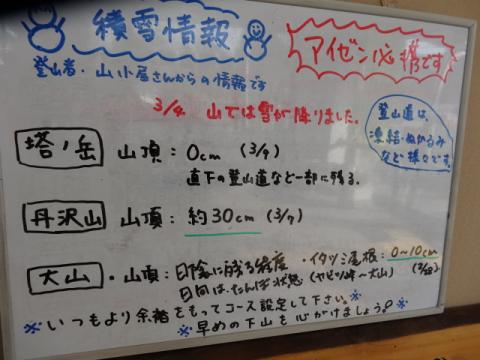 積雪情報
アイゼン必携です
登山者・山小屋さんからの情報です
3/4 山では雪が降りました。
登山道は、
凍結・ぬかるみ
など様々です。
塔ノ岳 山頂：0cm (3/9)
直下の登山道など一部に残る。
丹沢山 山頂：約30cm (3/7)
大山・山頂：日陰に残る程度 ・イタツミ尾根：0~10cm
日向は、たんぼ状態 (ヤビツ峠~大山)
※いつもより余裕をもってコース設定して下さい。※
※早めの下山を心がけましょう!※